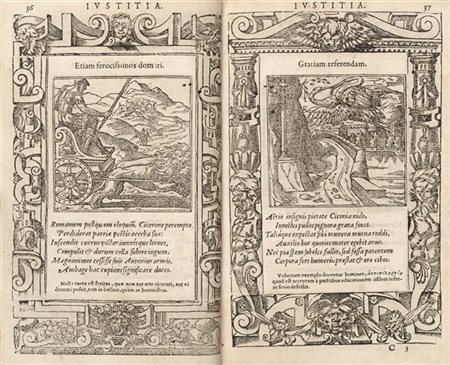 36
IVSTITIA.
Etiam ferocissimos domari.
Romanum postquam eloquium, Cicerone perempto,
Perdiderat patriæ pestis acerba suæ:
Inscendit currus victor, iunxitque leones,
Compulit & durum colla subire iugum:
Magnanimos cessisse suis Antonius armis,
Ambage hac cupiens significare duces.
Nulla tanta est feritas, quæ non
IVSTITIA.
37
Gratiam referendam.
Aërio insignis pietate Ciconia nido,
Inuestes pullos pignora grata fouet.
Taliaque expectat sibi munera mutua reddi,
Auxilio hoc quoties mater egebit anus.
Nec pia spem soboles fallit, sed fessa parentum
Corpora fert humeris, præstat & ore cibos.
Volucrum exemplo docentur homines,
quod est acceptam à parentibus educationem
C 3